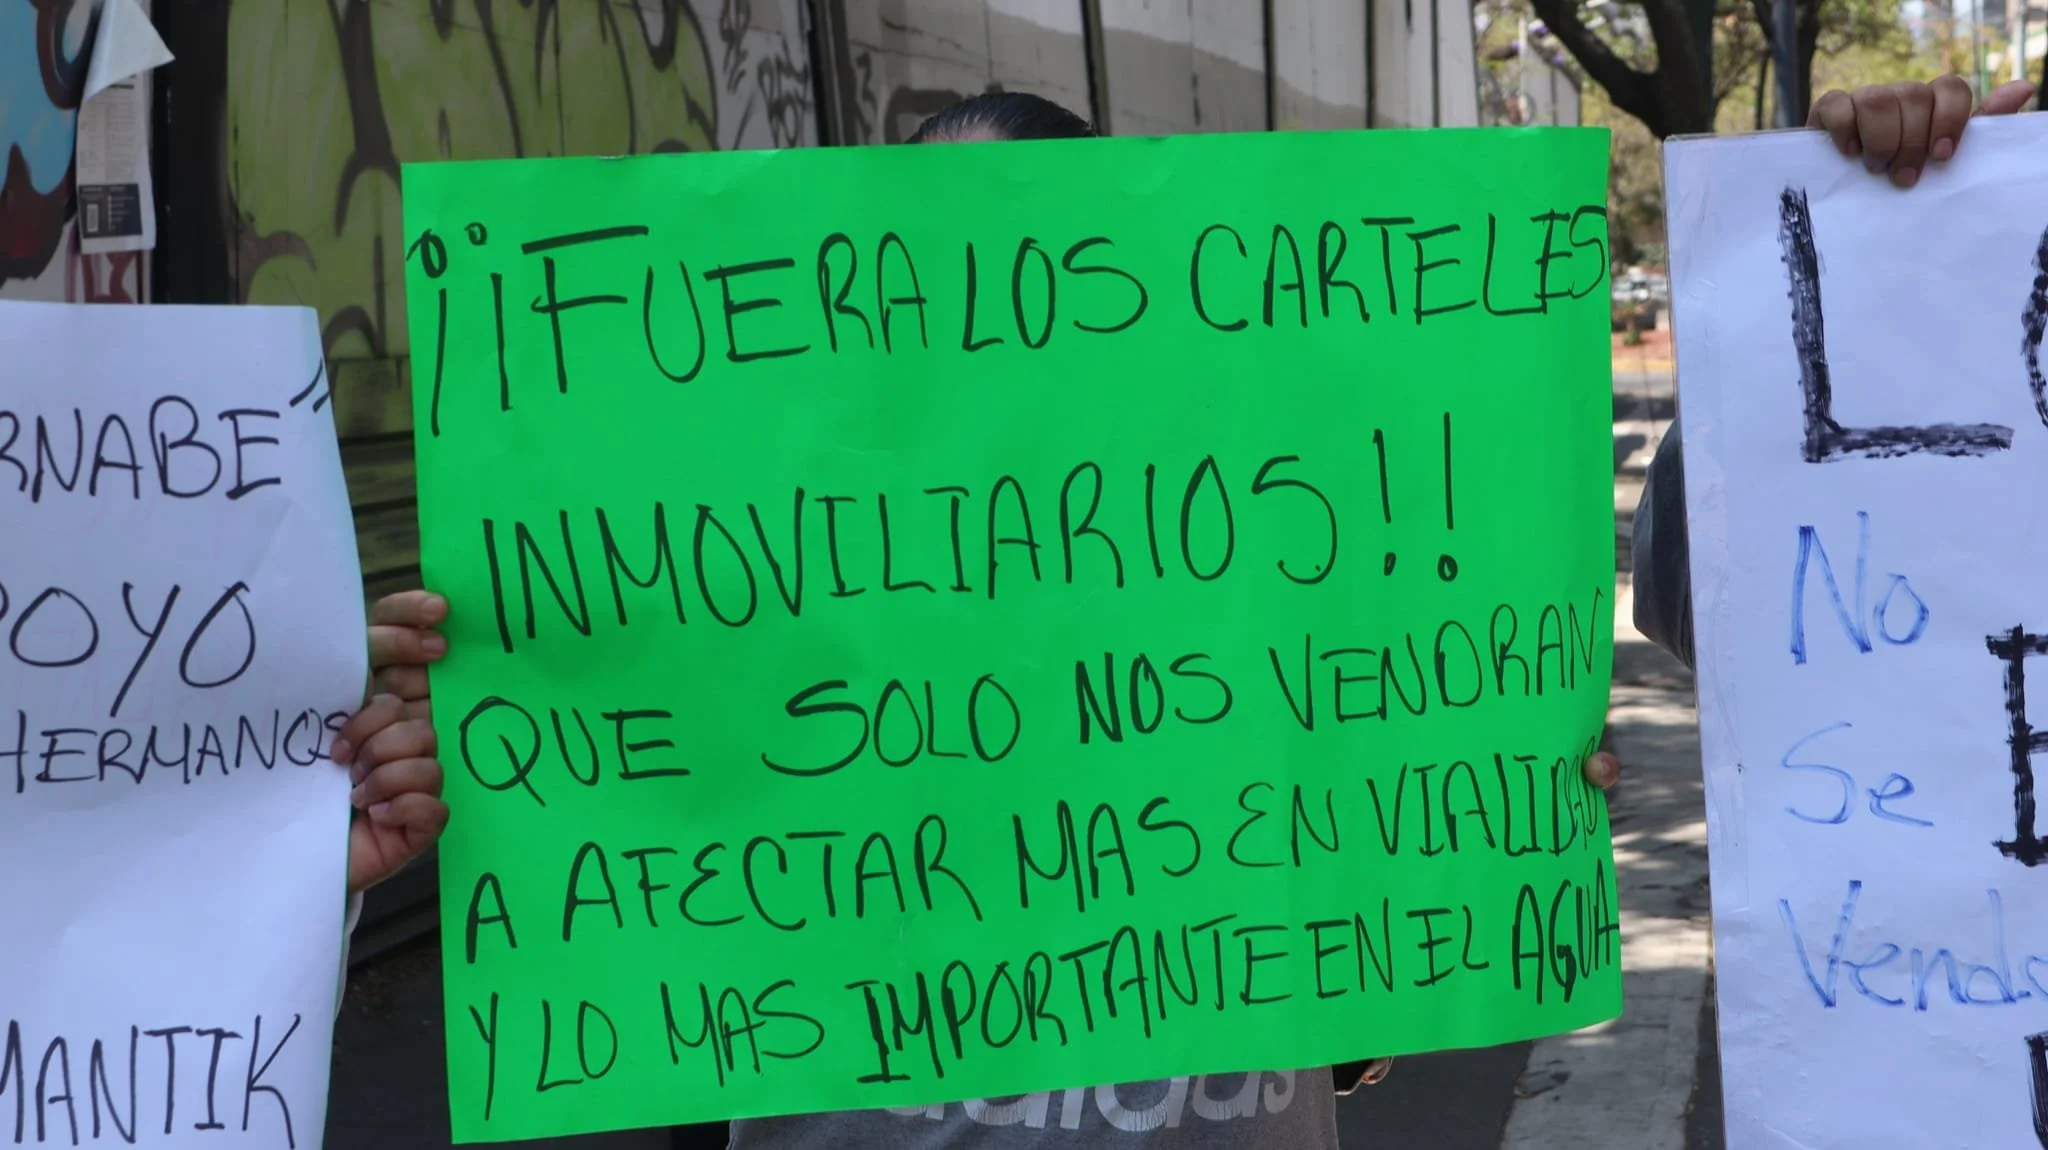 RNABE"
POYO
HERMANOS
MANTIK
¡¡FUERA LOS CARTELES
INMOVILIARIOS!!
QUE SOLO NOS VENDRAN
A AFECTAR MAS EN VIALIDAD
Y LO MAS IMPORTANTE EN EL AGUA
adidas
No
Se
Vende